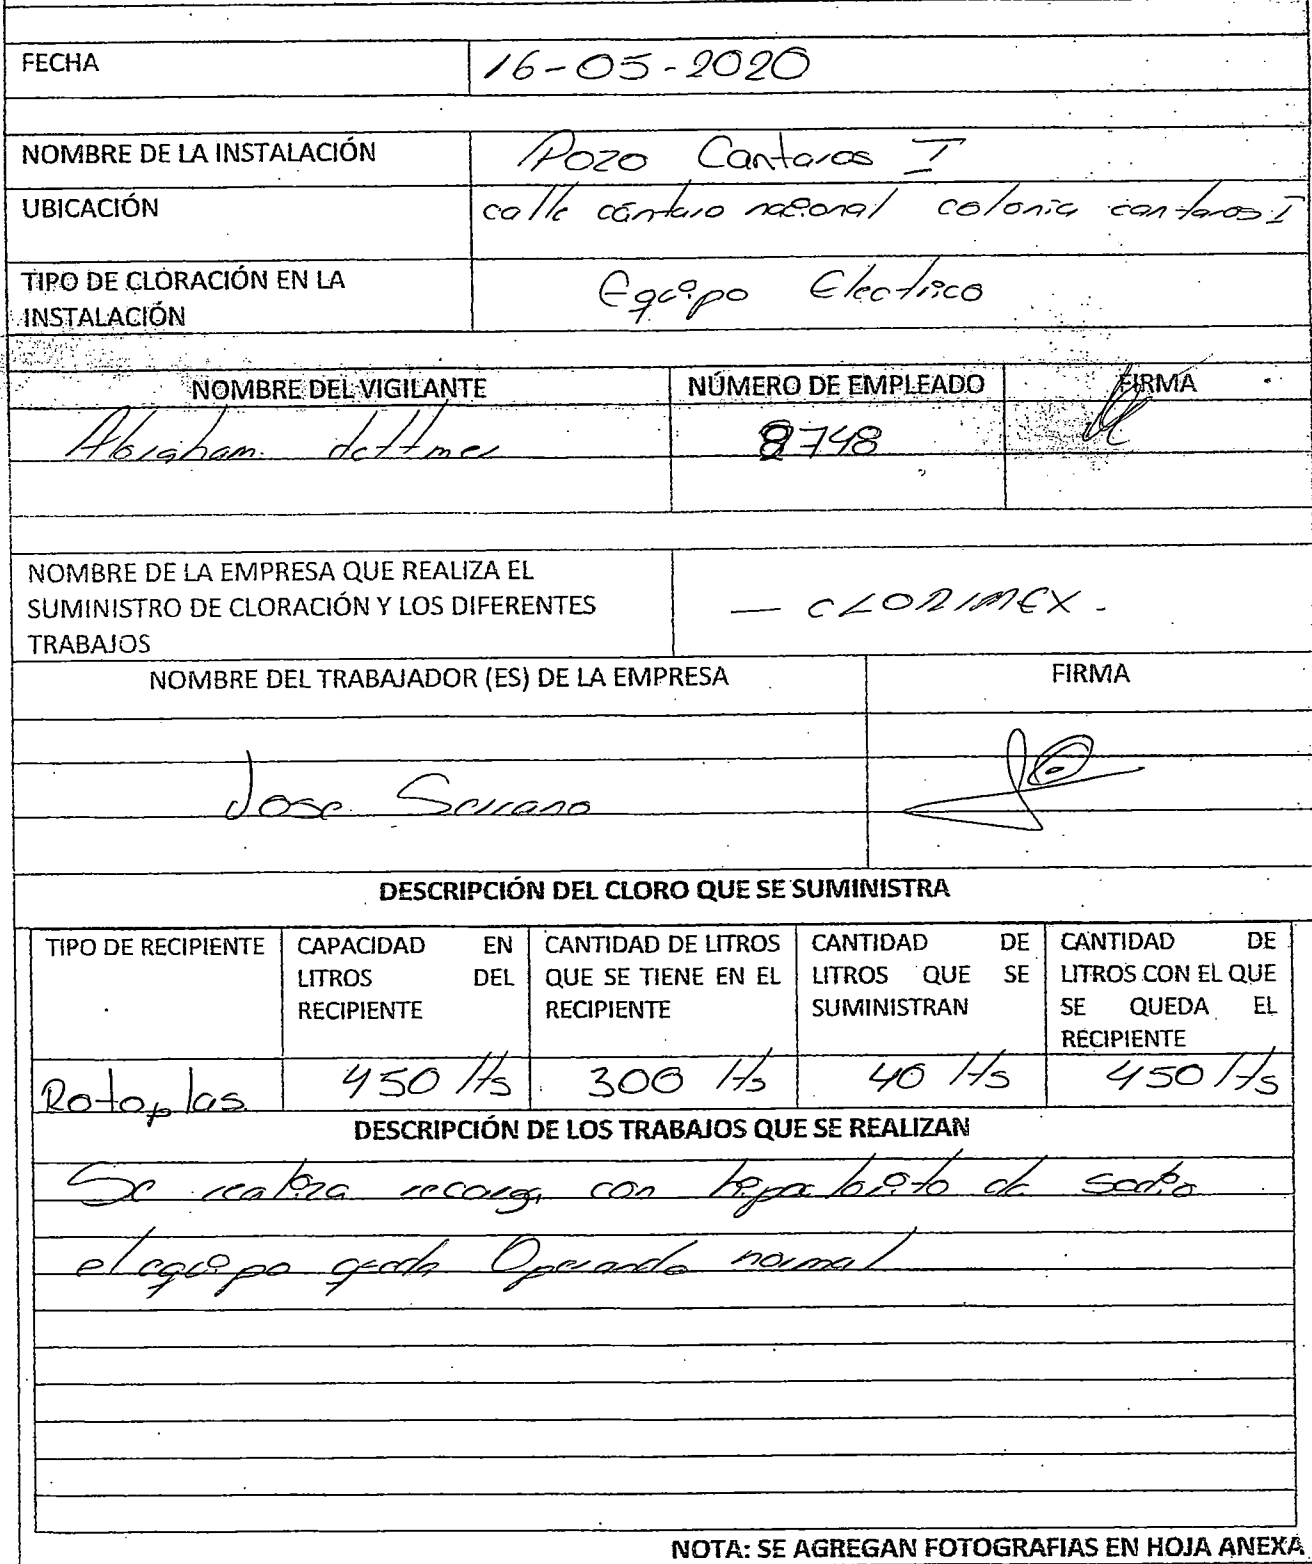 FECHA 16-05-2020
NOMBRE DE LA INSTALACIÓN Pozo Cantaros I
UBICACIÓN calle cántaro nacional colonia cantaros I
TIPO DE CLORACIÓN EN LA
INSTALACIÓN Equipo Electrico
NOMBRE DEL VIGILANTE NÚMERO DE EMPLEADO FIRMA
Abraham dettmer 8748
NOMBRE DE LA EMPRESA QUE REALIZA EL
SUMINISTRO DE CLORACIÓN Y LOS DIFERENTES
TRABAJOS — CLORIMEX.
NOMBRE DEL TRABAJADOR (ES) DE LA EMPRESA FIRMA
Jose Serrano
DESCRIPCIÓN DEL CLORO QUE SE SUMINISTRA
TIPO DE RECIPIENTE
CAPACIDAD EN
LITROS DEL
RECIPIENTE
CANTIDAD DE LITROS
QUE SE TIENE EN EL
RECIPIENTE
CANTIDAD DE
LITROS QUE SE
SUMINISTRAN
CANTIDAD DE
LITROS CON EL QUE
SE QUEDA EL
RECIPIENTE
Rotoplas 450 lts 300 lts 40 lts 450 lts
DESCRIPCIÓN DE LOS TRABAJOS QUE SE REALIZAN
Se realiza recarga con de sodio
el equipo queda Operando normal
NOTA: SE AGREGAN FOTOGRAFIAS EN HOJA ANEXA